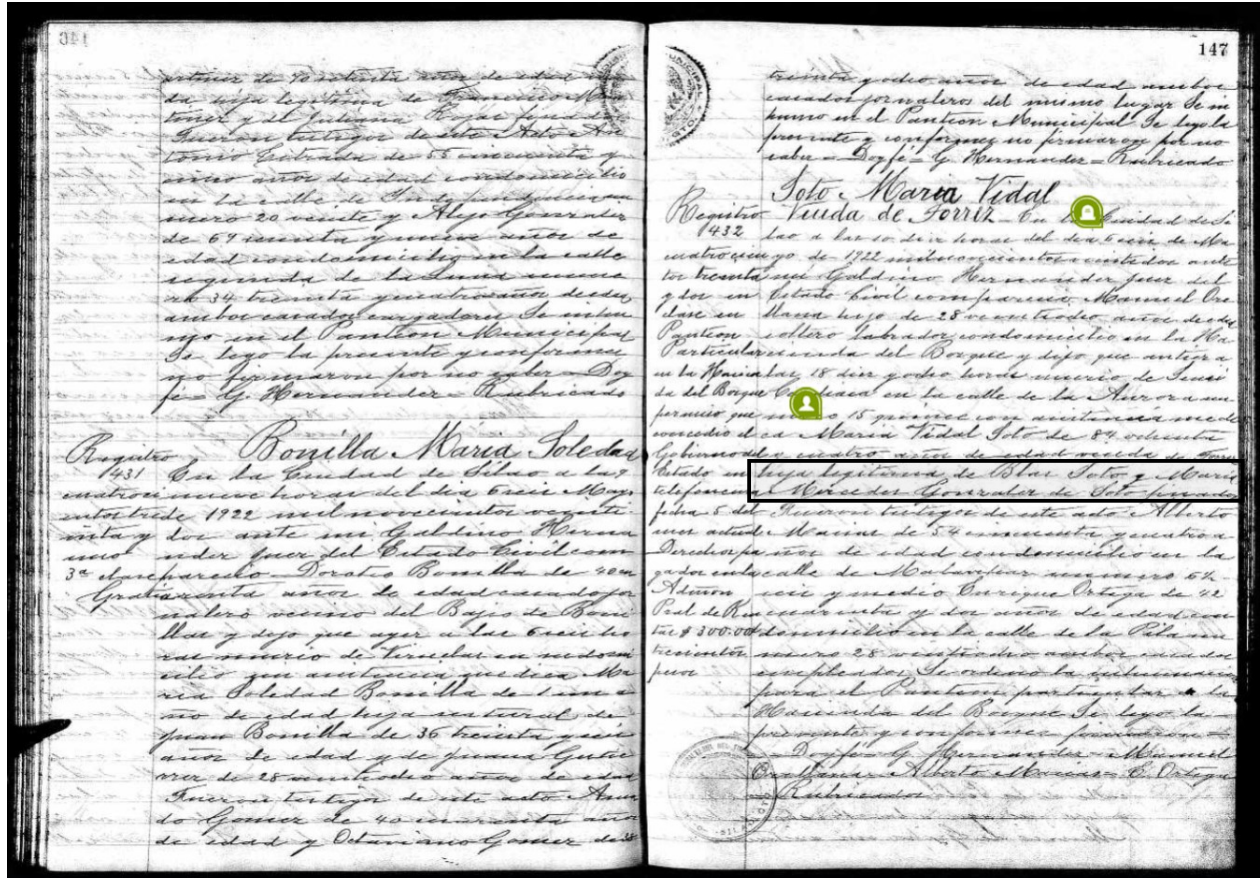 147
de
Francisco
tonez y de Juliana Rojas finados
Fueron testigos de este acto An
tonio Estrada de 55 cincuenta y
cinco años de edad con domicilio
en la calle de
mero 20 veinte y Alejo Gonzalez
de 69 sesenta y nueve años de
edad con domicilio en la calle
segunda de la nume
ro 34 treinta y cuatro años de edad
ambos casados cargadores Se inhu
mo en el Panteon Municipal
Se leyo la presente y conformes
no firmaron por no saber = Doy
fe = G. Hernandez = Rubricado
Registro
431
cuatroci
entos tre
inta y
uno
3ª clase
Gratis
Bonilla Maria Soledad
En la Ciudad de Silao a las 9
nueve horas del dia 6 seis Mayo
de 1922 mil novecientos veinti
dos ante mi Galdino Herna
ndez Juez del Estado Civil com
parecio Doroteo Bonilla de 40 cu
arenta años de edad casado jor
nalero vecino del Bajio de Boni
llas y dijo que ayer a las 6 seis ho
ras murio de Viruelas en su domi
cilio sin asistencia medica Ma
ria Soledad Bonilla de 1 un a
ño de edad hija natural de
Juan Bonilla de 36 treinta y seis
años de edad y de Juana Gutie
rrez de 28 veintiocho años de edad
Fueron testigos de este acto
do Gomez de 40 cuarenta años
de edad y Octaviano Gomez de 38
treinta y ocho años de edad ambos
casados jornaleros del mismo lugar Se in
humo en el Panteon Municipal Se leyo la
presente y conformes no firmaron por no
saber = Doy fe = G. Hernandez = Rubricado
Registro
432
cuatrocien
tos treinta
y dos en
clase en
Panteon
Particular
en la Hacien
da del Bosque
permiso que
concedio el
Gobierno del
Estado en
telefonema
fecha 5 del
mes actual
Derechos pa
gados en la
Admon
Pral de Ren
tas $300.00
trescientos
pesos
Soto Maria Vidal
Viuda de Torriz = En la Ciudad de Si
lao a las 10 diez horas del dia 6 seis de Ma
yo de 1922 mil novecientos veintidos ante
mi Galdino Hernandez Juez del
Estado Civil comparecio Manuel
de 28 veintiocho años de edad
soltero labrador con domicilio en la Ha
cienda del Bosque y dijo que
las 18 diez y ocho horas murio de
Cardiaca en la calle de la Aurora nu
mero 15 quince con asistencia medi
ca Maria Vidal Soto de 84 ochenta
y cuatro años de edad viuda de
hija legitima de Blas Soto y Maria
Mercedes Gonzalez de Soto finados
Fueron testigos de este acto Alberto
Macias de 54 cincuenta y cuatro a
ños de edad con domicilio en la
calle de numero 6½
seis y medio Enrique Ortega de 42
cuarenta y dos años de edad con
domicilio en la calle de la Pila nu
mero 28 veintiocho ambos casados
empleados Se ordeno la inhumacion
para el Panteon particular de la
Hacienda del Bosque Se leyo la
presente y conformes firmaron =
Doy fe = G. Hernandez = Manuel
Alberto Macias = E. Ortega
Rubricados